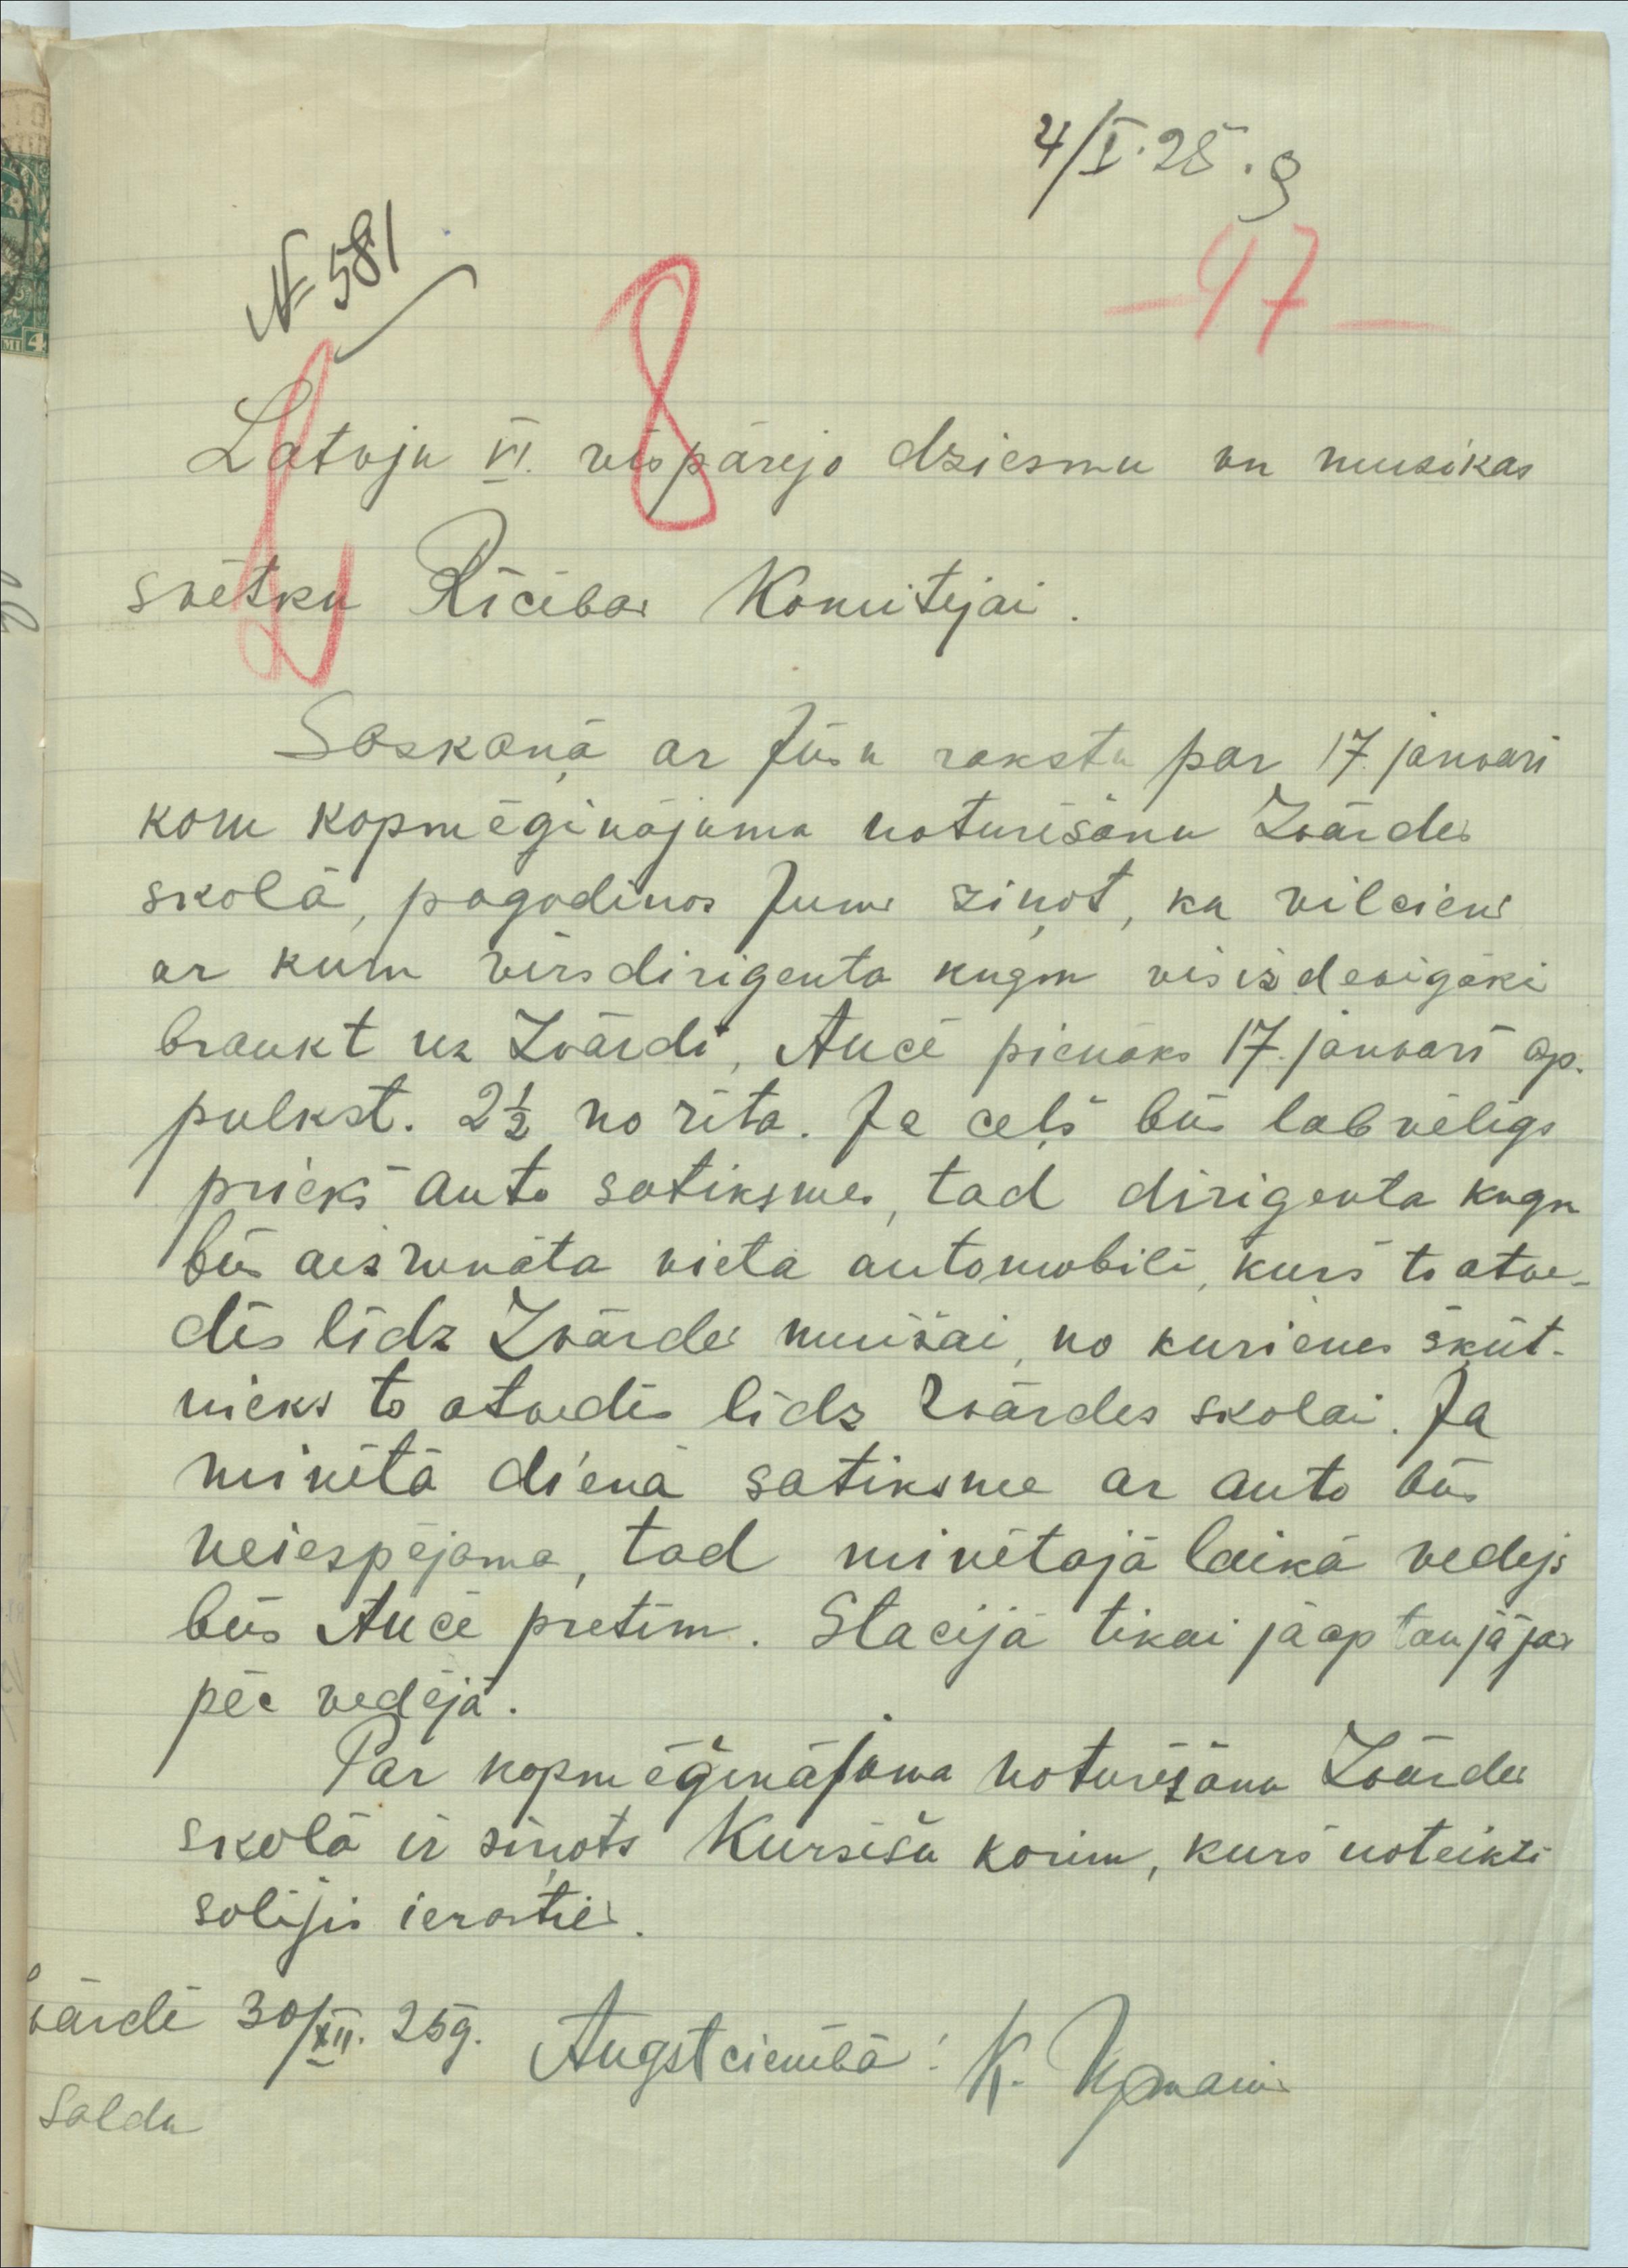 4/I. 25. g
№ 581
8
– 97 –
Latvju VI. vispārejo dziesmu un musikas
svētku Rīcības Komitejai.
Saskaņā ar Jūsu rakstu par 17. janvarī
kom kopmēģinājuma noturēšanu Zvārdes
skolā, pagodinos Jums ziņot, ka vilciens
ar kum virsdirigenta kngm visizdevigāki
braukt uz Zvārdi, Aucē pienāks 17. janvarī ap.
pulkst. 2½ no rīta. Ja ceļš būs labvēligs
priekš auto satiksmes, tad dirigenta kngm
būs aizrunāta vieta automobilī, kurš to atve-
dīs līdz Zvārdes muižai, no kurienes šķūt-
nieks to atvedīs līdz Zvārdes skolai. Ja
minētā dienā satiksme ar auto būs
neiespējama, tad minētajā laikā vedejs
būs Aucē pretim. Stacijā tikai jāaptaujājas
pēc vedējā.
Par kopmēģinājuma noturēšanu Zvārdes
skolā ir ziņots Kursišu korim, kurš noteikti
solijis ierasties.
vārdē 30/XII. 25g. Augstcienibā: K.
Saldu